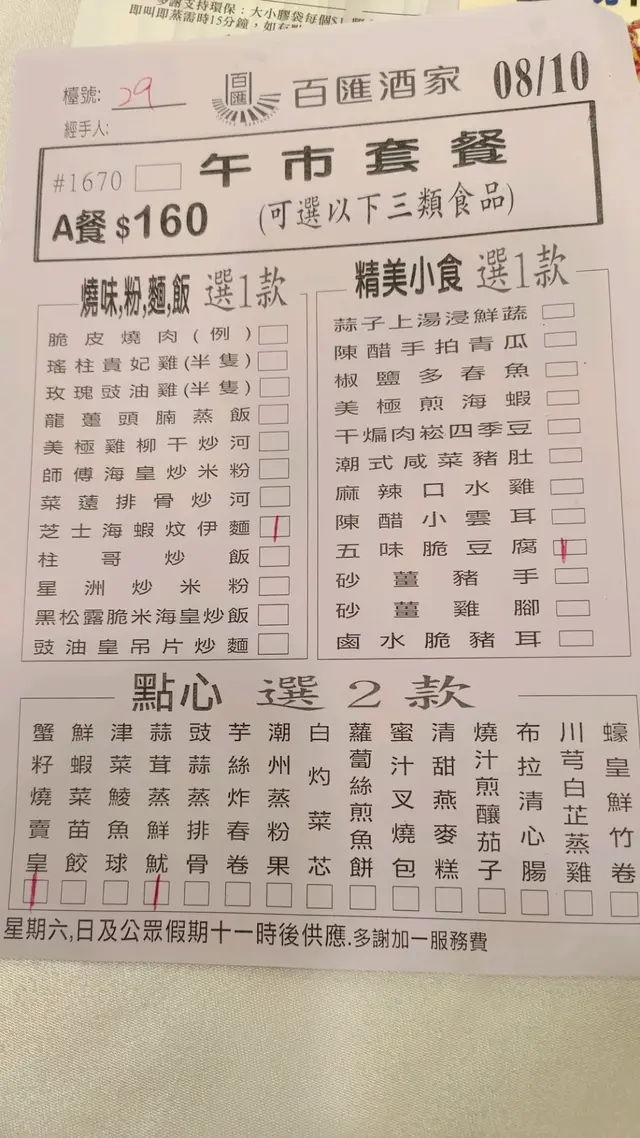 多謝支持環保：大小膠袋每個$1
即叫即蒸需時15分鐘，如有
檯號: 29
百匯
百匯酒家 08/10
經手人:
#1670 午市套餐
A餐 $160 (可選以下三類食品)
燒味,粉,麵,飯 選1款
脆皮燒肉(例)
瑤柱貴妃雞(半隻)
玫瑰豉油雞(半隻)
龍躉頭腩蒸飯
美極雞柳干炒河
師傅海皇炒米粉
菜薳排骨炒河
芝士海蝦炆伊麵
柱哥炒飯
星洲炒米粉
黑松露脆米海皇炒飯
豉油皇吊片炒麵
精美小食 選1款
蒜子上湯浸鮮蔬
陳醋手拍青瓜
椒鹽多春魚
美極煎海蝦
干煸肉崧四季豆
潮式咸菜豬肚
麻辣口水雞
陳醋小雲耳
五味脆豆腐
砂薑豬手
砂薑雞腳
鹵水脆豬耳
點心 選2款
蟹籽燒賣皇
鮮蝦菜苗餃
津菜鯪魚球
蒜茸蒸鮮魷
豉蒜蒸排骨
芋絲炸春卷
潮州蒸粉果
白灼菜芯
蘿蔔絲煎魚餅
蜜汁叉燒包
清甜燕麥糕
燒汁煎釀茄子
布拉清心腸
川芎白芷蒸雞
蠔皇鮮竹卷
星期六,日及公眾假期十一時後供應.多謝加一服務費